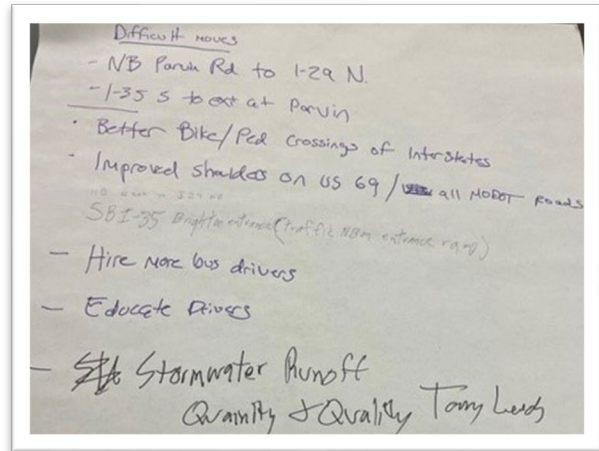 Difficult moves
- NB Parvin Rd to I-29 N.
- I-35 S to ext at Parvin
· Better Bike/Ped Crossings of Interstates
· Improved shoulders on US 69 / all MODOT Roads
SB I-35 Brighton entrance (traffic NB on entrance ramp)
- Hire more bus drivers
- Educate Drivers
- Stormwater Runoff
Quainity & Quality Tony